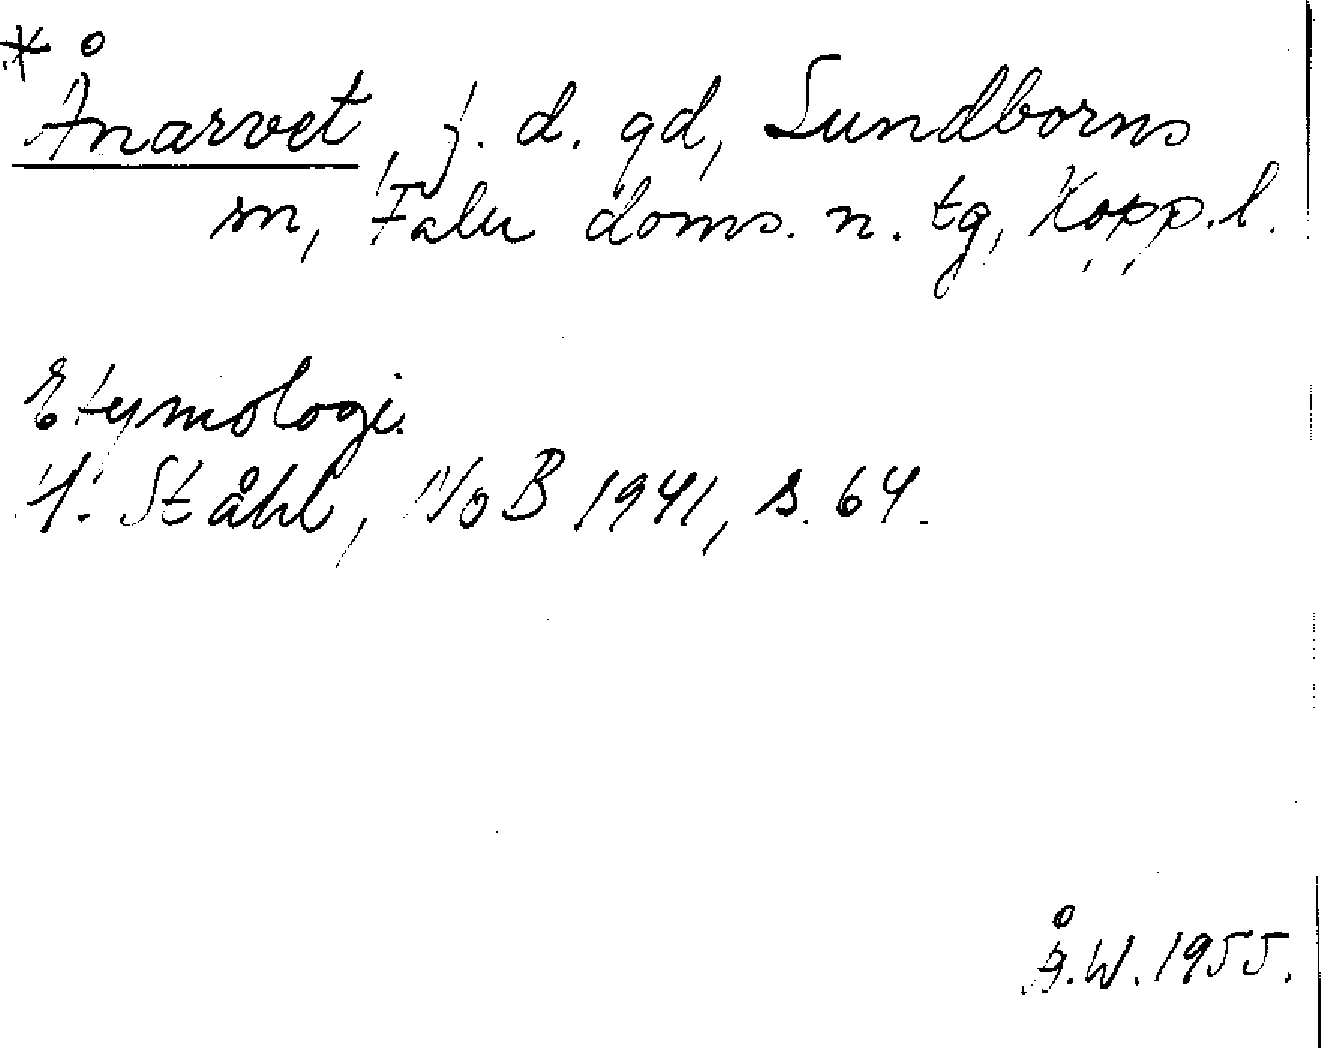 * Ånarvet, j. d. gd, Sundborns
sn, Falu doms. n. tg, Kopp. l.
Etymologi.
H. Ståhl, NoB 1941, s. 64.
Å.W. 1955.